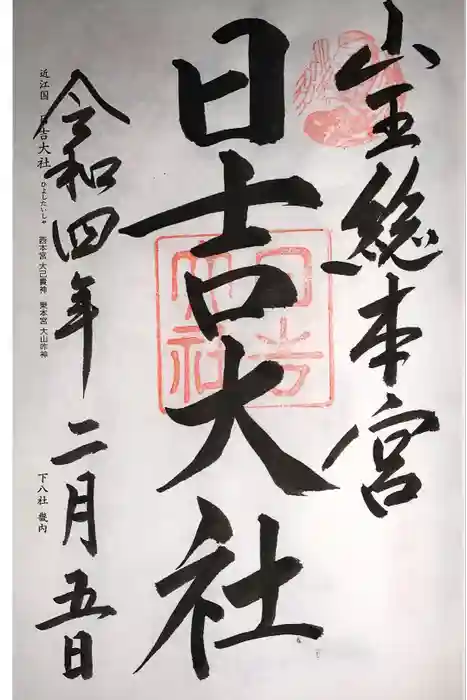 山王総本宮
日吉大社
日吉大社
令和四年二月五日
近江国 日吉大社 ひよしたいしゃ 西本宮 大己貴神 東本宮 大山咋神
下八社 畿内